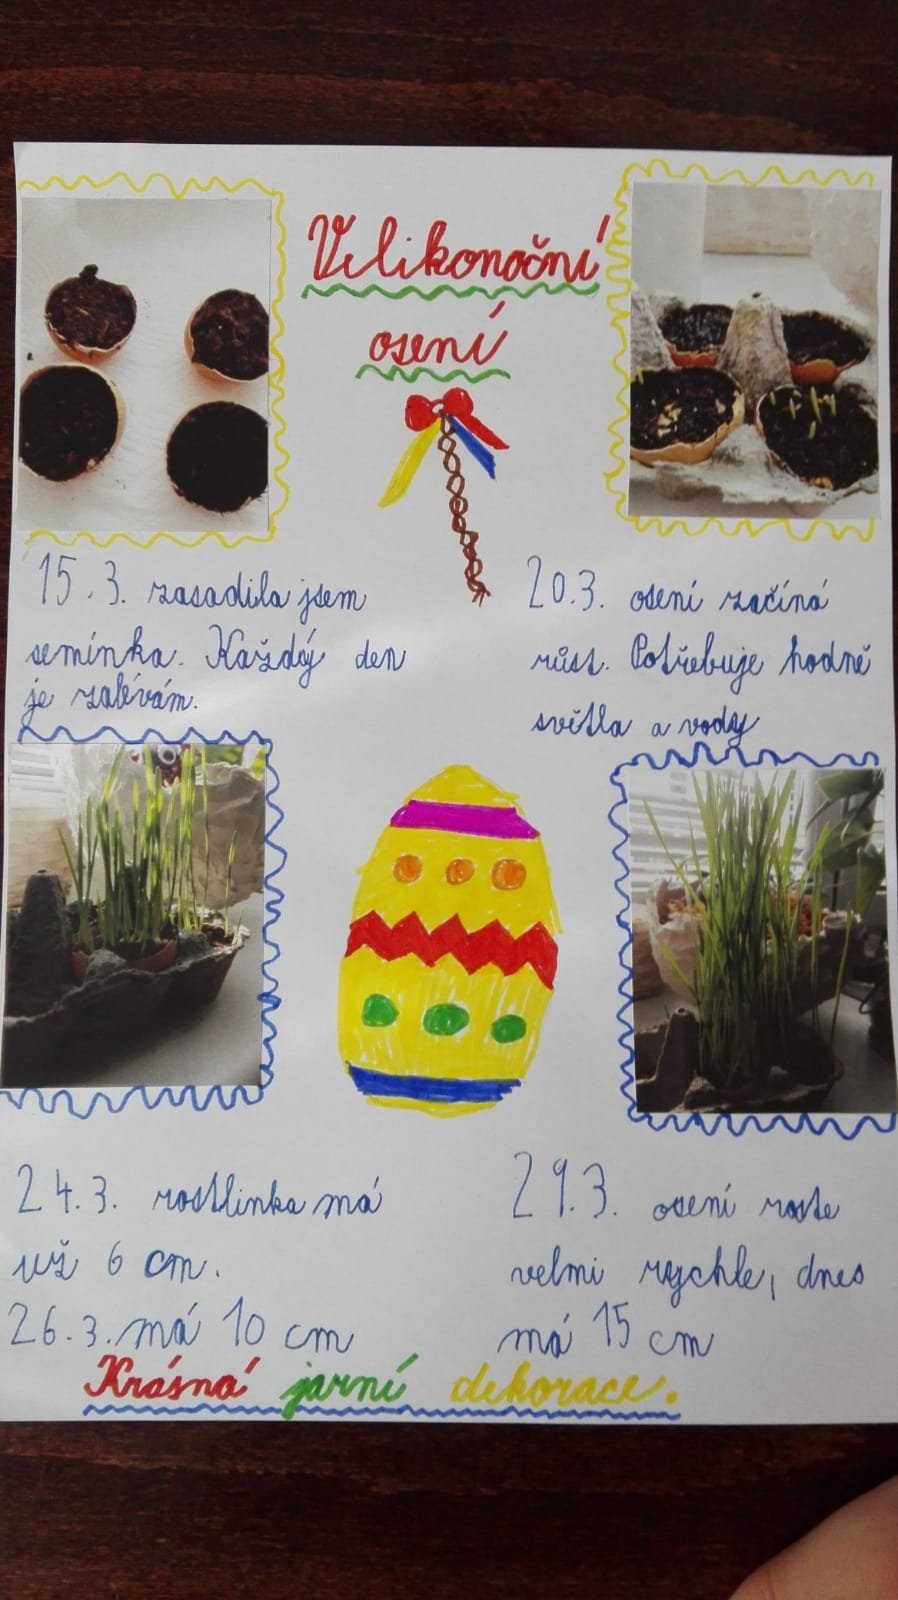 Velikonoční
osení
15.3. zasadila jsem
semínka. Každý den
je zalévám.
20.3. osení začíná
růst. Potřebuje hodně
světla a vody
24.3. rostlinka má
už 6 cm.
26.3. má 10 cm
29.3. osení roste
velmi rychle, dnes
má 15 cm
Krásná jarní dekorace.